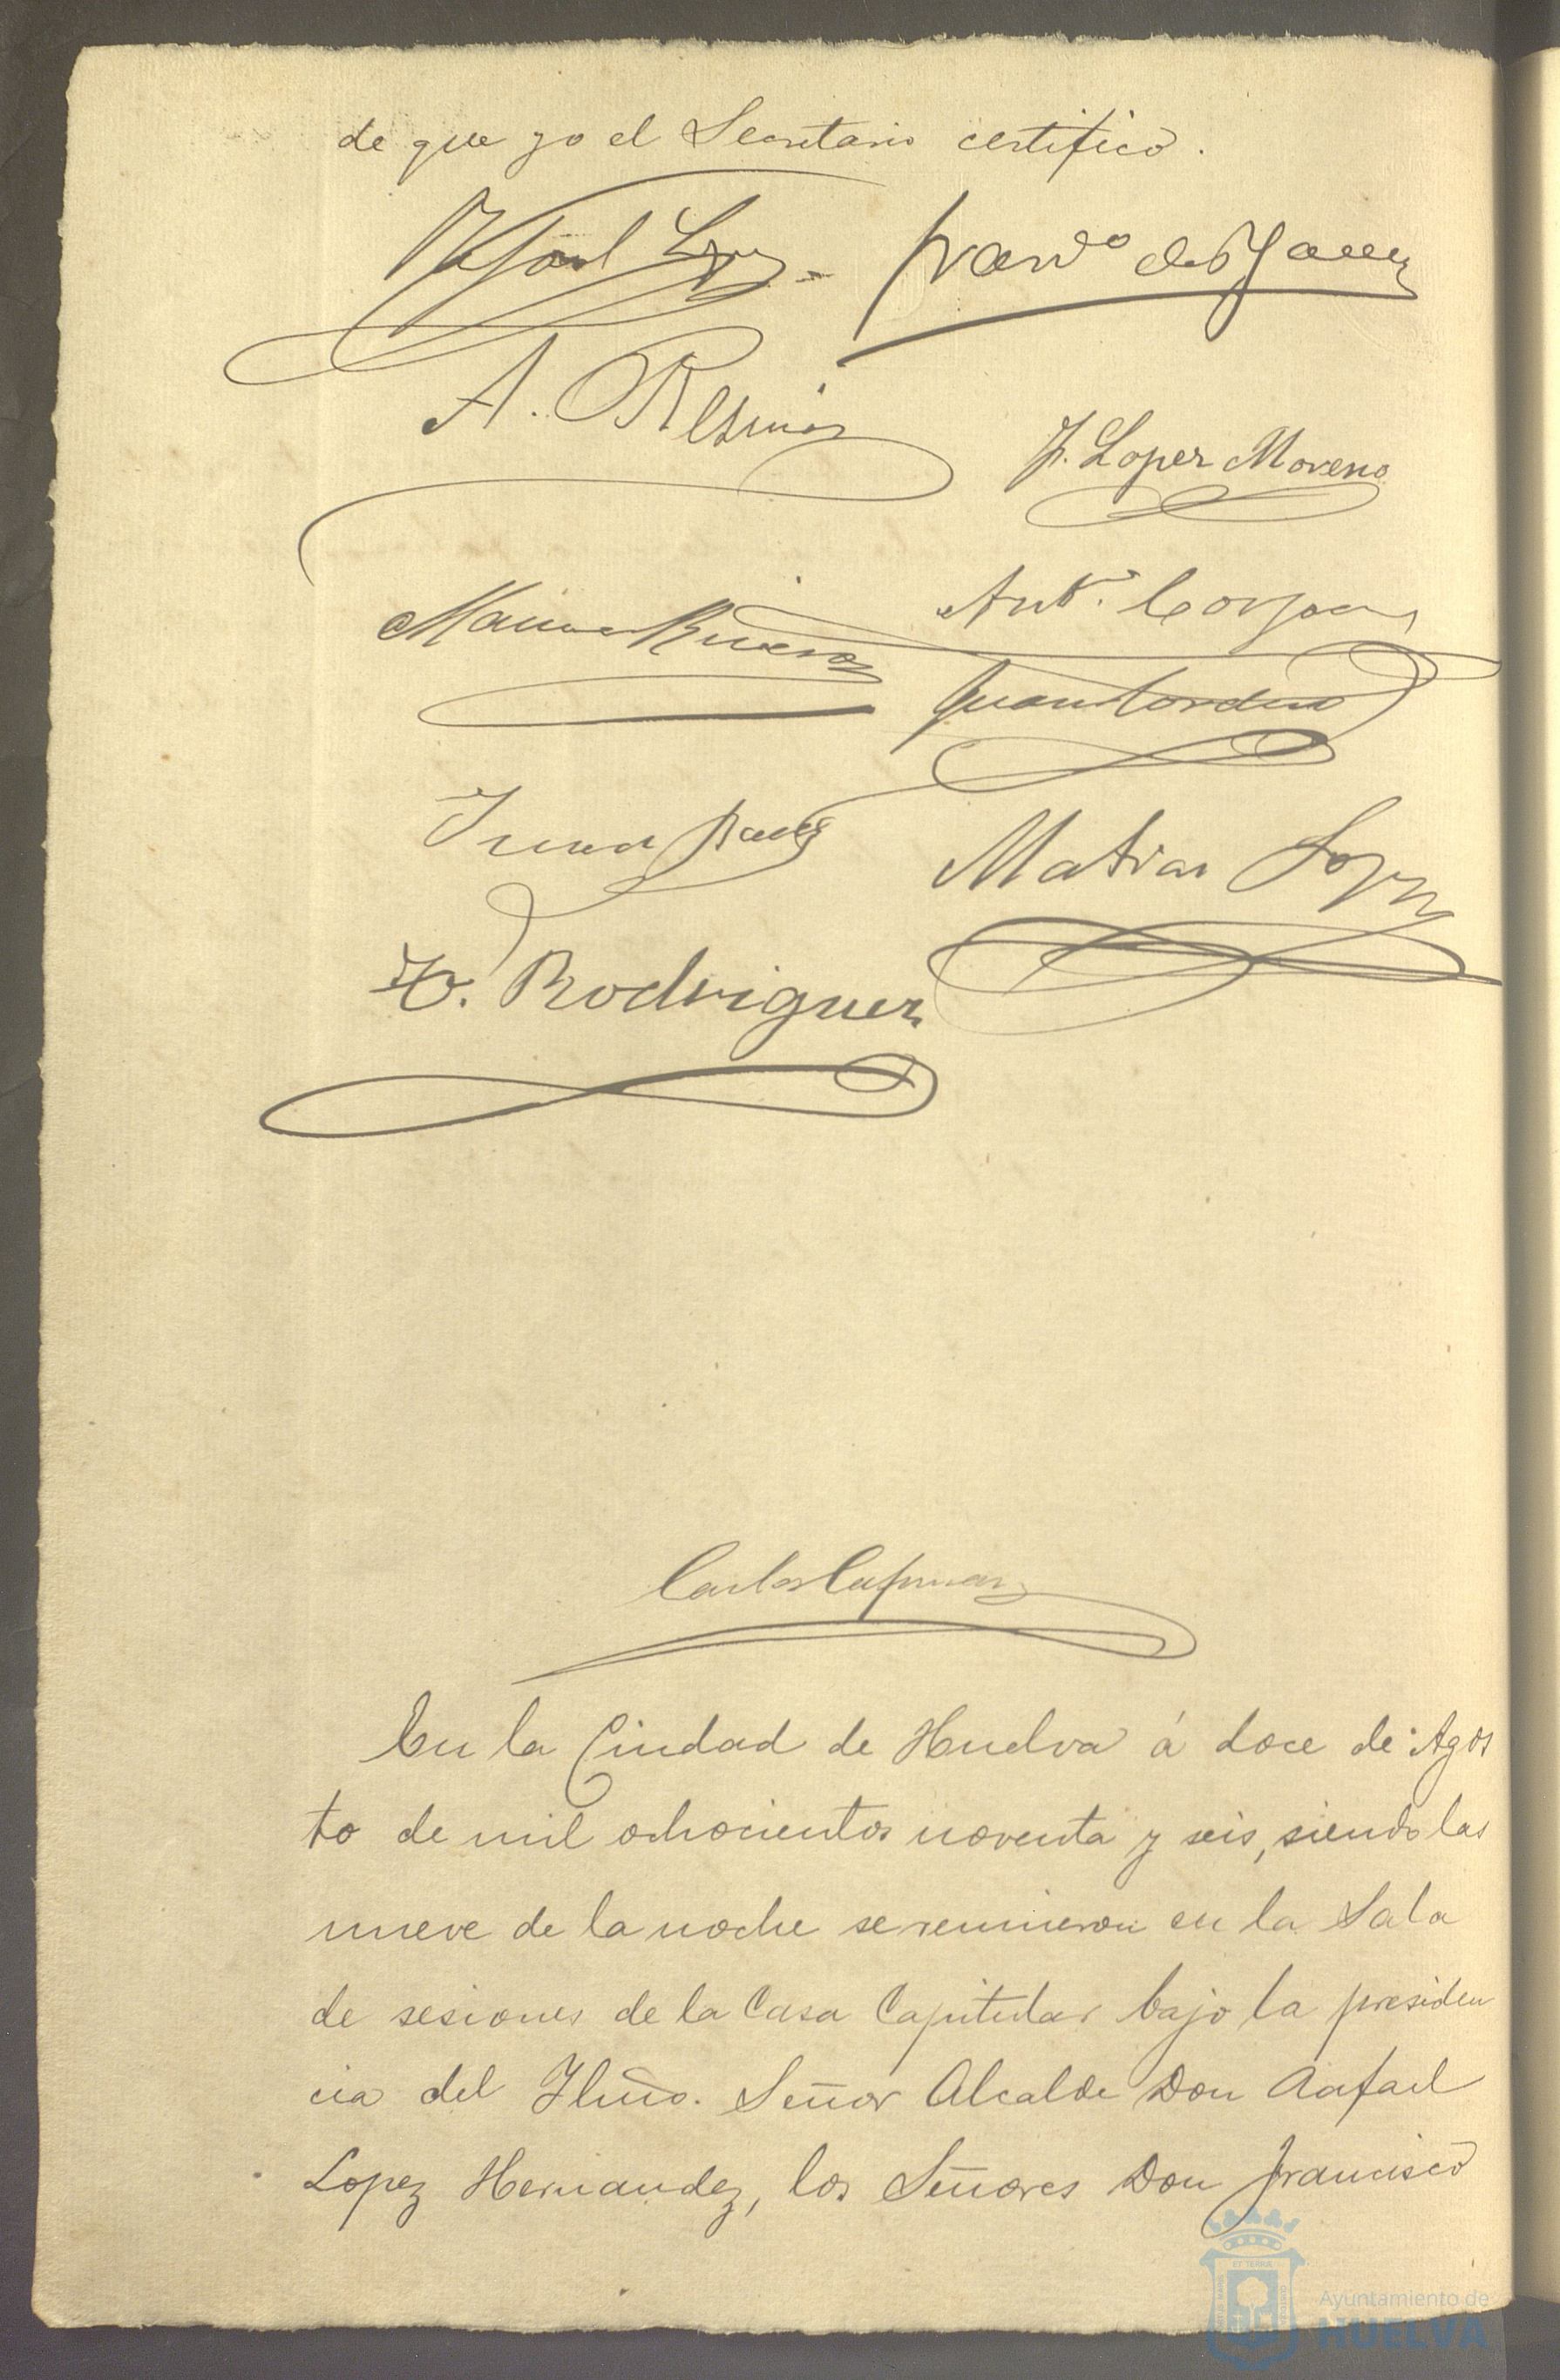 de que yo el Secretario certifico.
Rafael Lopez
A. Resmis
F. Lopez Moreno
Ant.
Juan
Matias Lopez
Rodriguez
Carlos
En la Ciudad de Huelva á doce de Agos
to de mil ochocientos noventa y seis, siendo las
nueve de la noche se reunieron en la Sala
de sesiones de la Casa Capitular bajo la presiden
cia del Ilmo. Señor Alcalde Don Rafael
Lopez Hernandez, los Señores Don Francisco
Ayuntamiento de
HUELVA